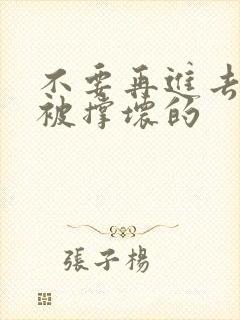 不要再進去
被撐壞的
張子楊